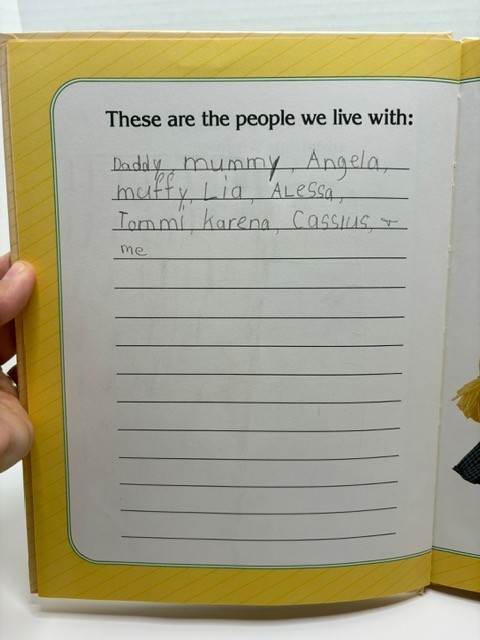 These are the people we live with:
Daddy, mummy, Angela,
muffy, Lia, Alessa,
Tommi, Karena, Cassius, +
me